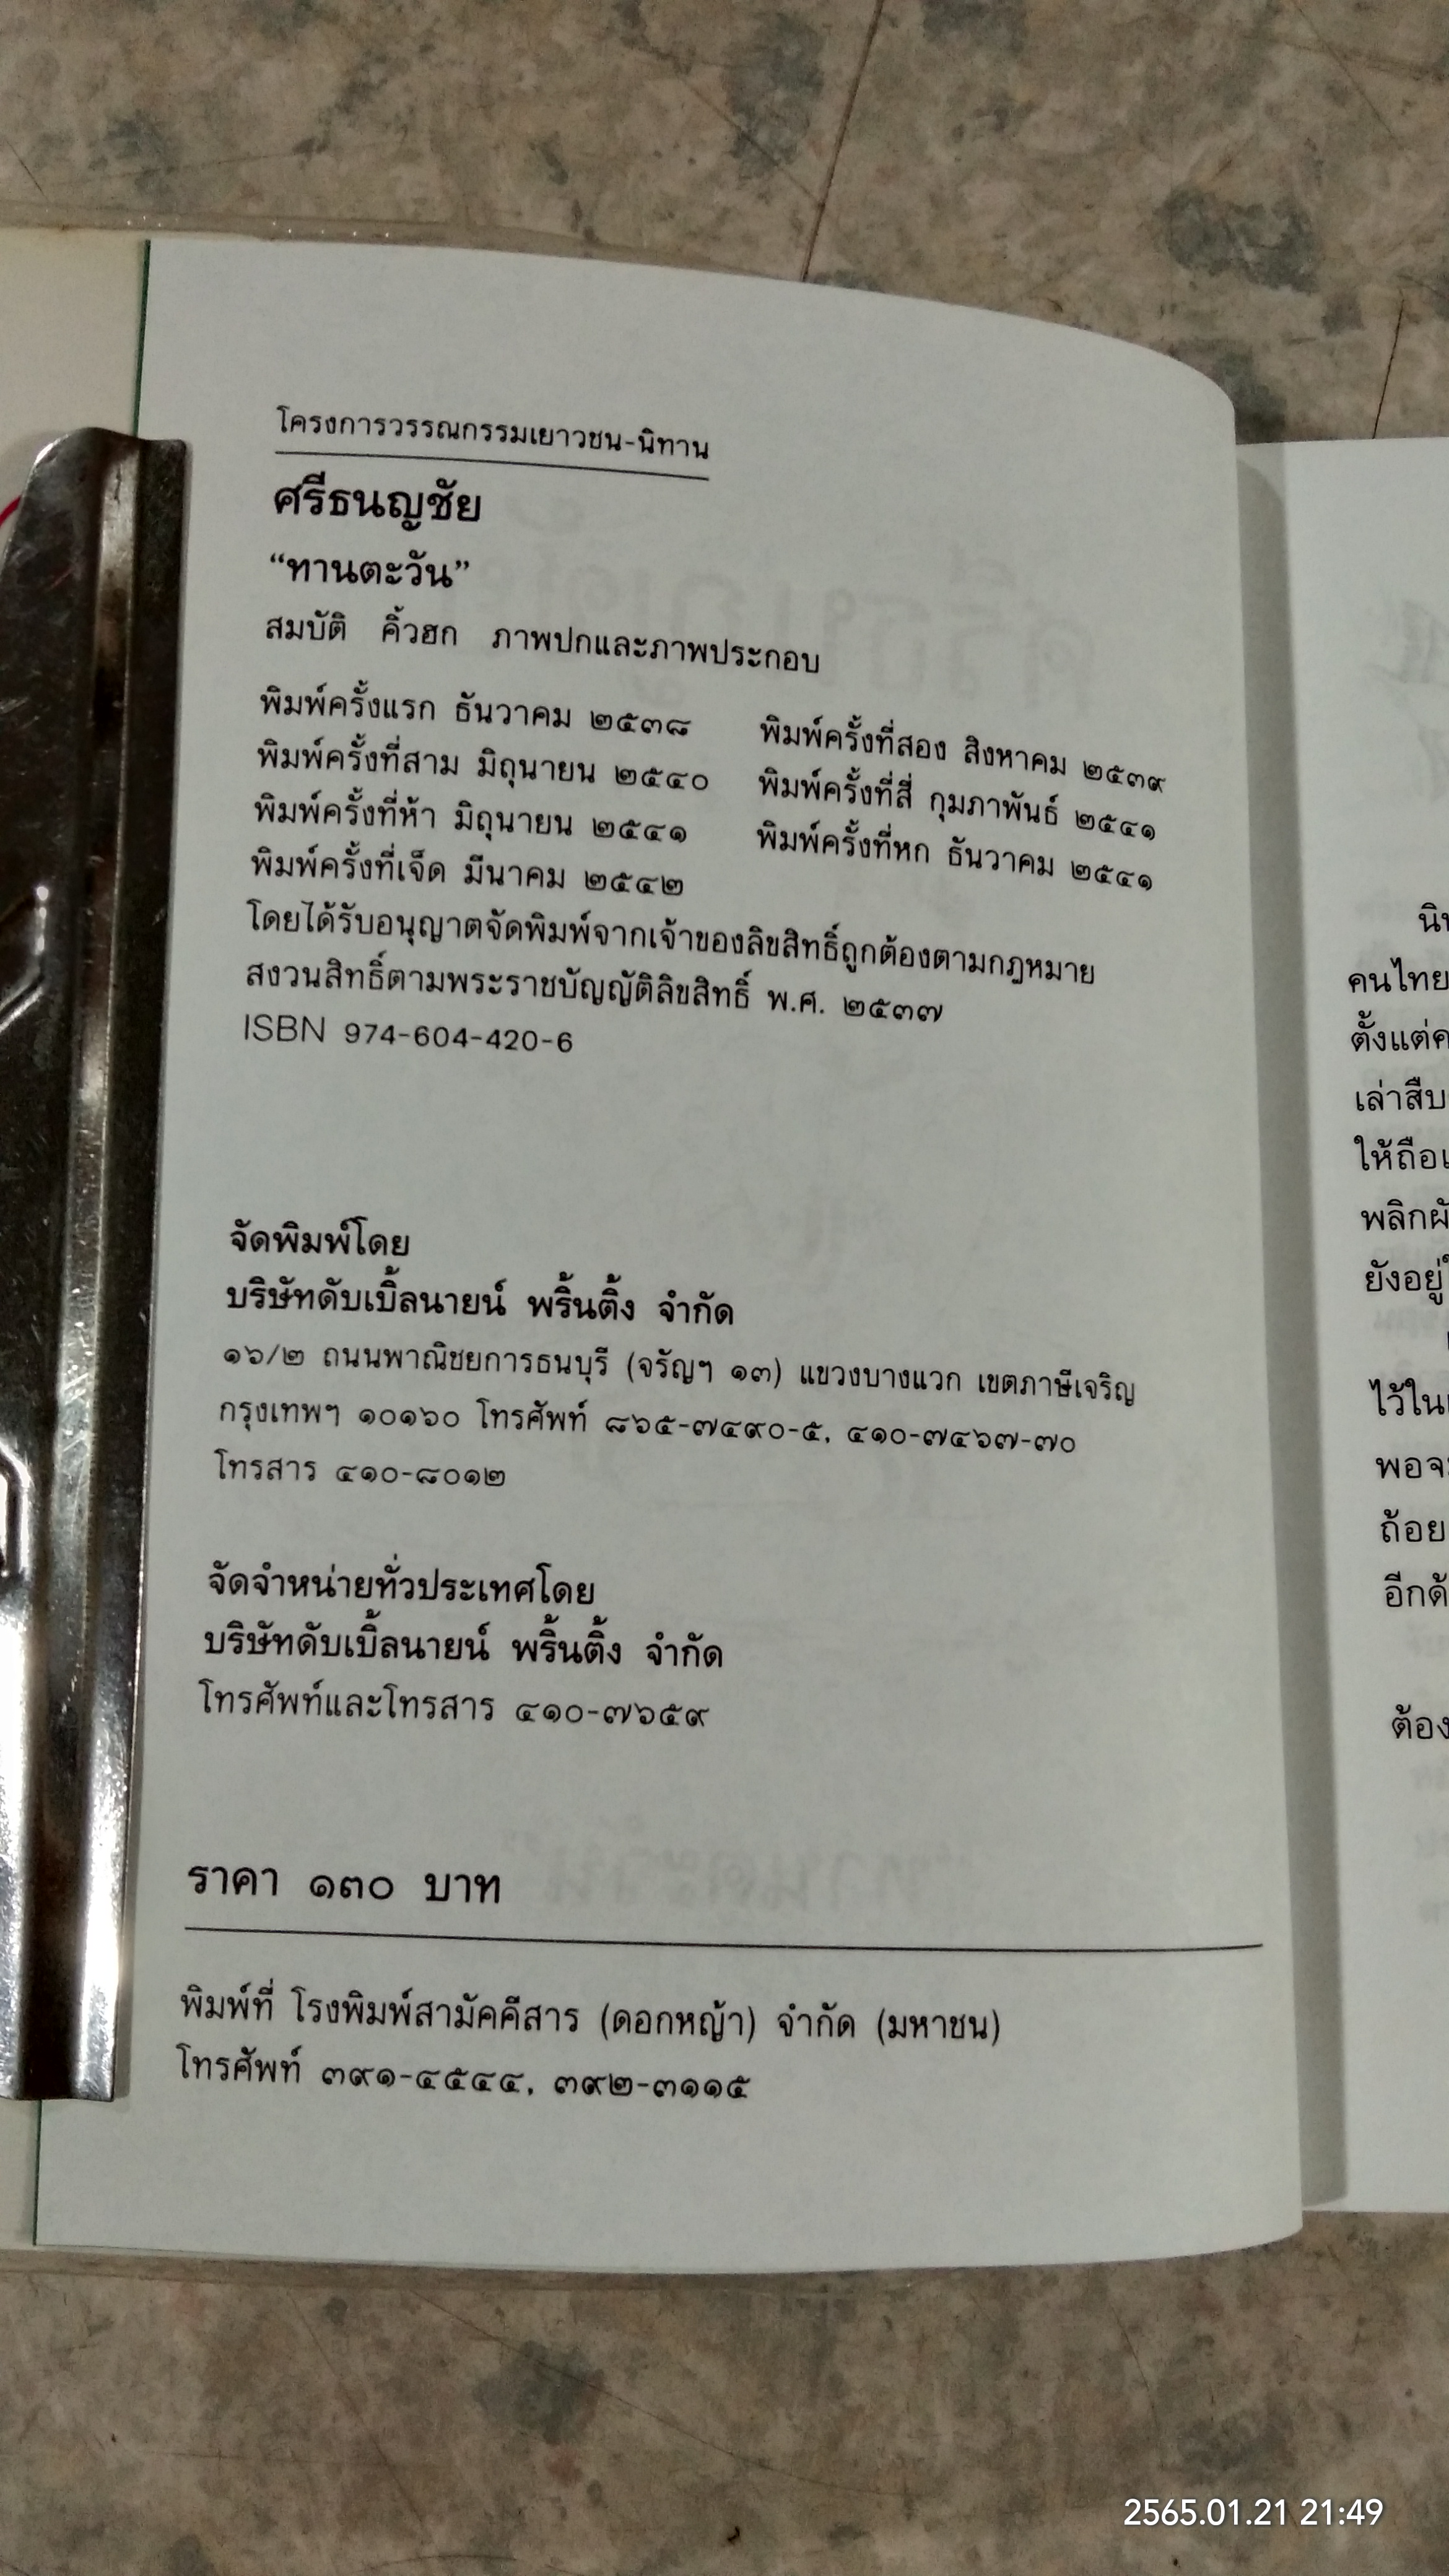 โครงการวรรณกรรมเยาวชน-นิทาน
ศรีธนญชัย
“ทานตะวัน”
สมบัติ คิ้วฮก ภาพปกและภาพประกอบ
พิมพ์ครั้งแรก ธันวาคม ๒๕๓๘ พิมพ์ครั้งที่สอง สิงหาคม ๒๕๓๙
พิมพ์ครั้งที่สาม มิถุนายน ๒๕๔๐ พิมพ์ครั้งที่สี่ กุมภาพันธ์ ๒๕๔๑
พิมพ์ครั้งที่ห้า มิถุนายน ๒๕๔๑ พิมพ์ครั้งที่หก ธันวาคม ๒๕๔๑
พิมพ์ครั้งที่เจ็ด มีนาคม ๒๕๔๒
โดยได้รับอนุญาตจัดพิมพ์จากเจ้าของลิขสิทธิ์ถูกต้องตามกฎหมาย
สงวนสิทธิ์ตามพระราชบัญญัติลิขสิทธิ์ พ.ศ. ๒๕๓๗
ISBN 974-604-420-6
จัดพิมพ์โดย
บริษัทดับเบิ้ลนายน์ พริ้นติ้ง จำกัด
๑๖/๒ ถนนพาณิชยการธนบุรี (จรัญฯ ๑๓) แขวงบางแวก เขตภาษีเจริญ
กรุงเทพฯ ๑๐๑๖๐ โทรศัพท์ ๘๖๕-๗๔๙๐-๕, ๔๑๐-๗๔๖๗-๗๐
โทรสาร ๔๑๐-๘๐๑๒
จัดจำหน่ายทั่วประเทศโดย
บริษัทดับเบิ้ลนายน์ พริ้นติ้ง จำกัด
โทรศัพท์และโทรสาร ๔๑๐-๗๖๕๙
ราคา ๑๓๐ บาท
พิมพ์ที่ โรงพิมพ์สามัคคีสาร (ดอกหญ้า) จำกัด (มหาชน)
โทรศัพท์ ๓๙๑-๔๕๔๔, ๓๙๒-๓๑๑๕
คนไทย
ตั้งแต่
เล่าสืบ
ให้ถือ
ยังอยู่
ถ้อย
ต้อง
2565.01.21 21:49